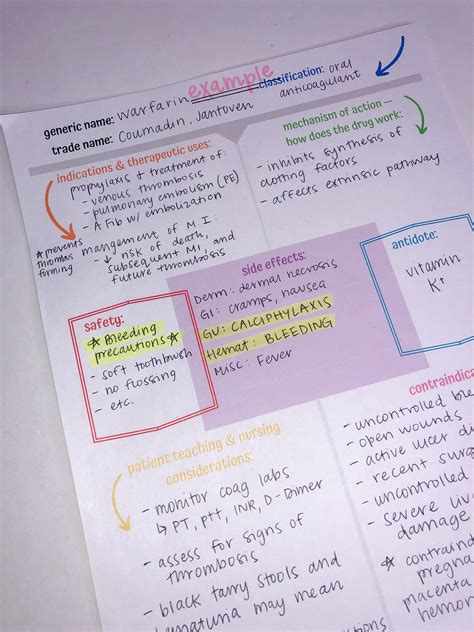 example
generic name: warfarin
classification: oral
anticoagulant
trade name: Coumadin, Jantoven
indications & therapeutic uses:
prophylaxis & treatment of:
- venous thrombosis
- pulmonary embolism (PE)
- A Fib w/ embolization
☆ prevents
thrombus
forming
mangement of M.I.
- ↓ risk of death,
subsequent MI, and
future thrombosis
mechanism of action –
how does the drug work:
- inhibits synthesis of
clotting factors
- affects extrinsic pathway
safety:
☆ Bleeding
precautions ☆
- soft toothbrush
- no flossing
- etc.
side effects:
Derm: dermal necrosis
GI: cramps, nausea
GU: CALCIPHYLAXIS
Hemat: BLEEDING
Misc: Fever
antidote:
vitamin
K+
patient teaching & nursing
considerations:
- monitor coag labs
↳ PT, PTT, INR, D-Dimer
- assess for signs of
thrombosis
- black tarry stools and
hematuria may mean
contraindica
- uncontrolled blee
- open wounds
- active ulcer di
- recent surg
- uncontrolled
- severe live
damage
☆ contraind
pregna
placenta
hemor